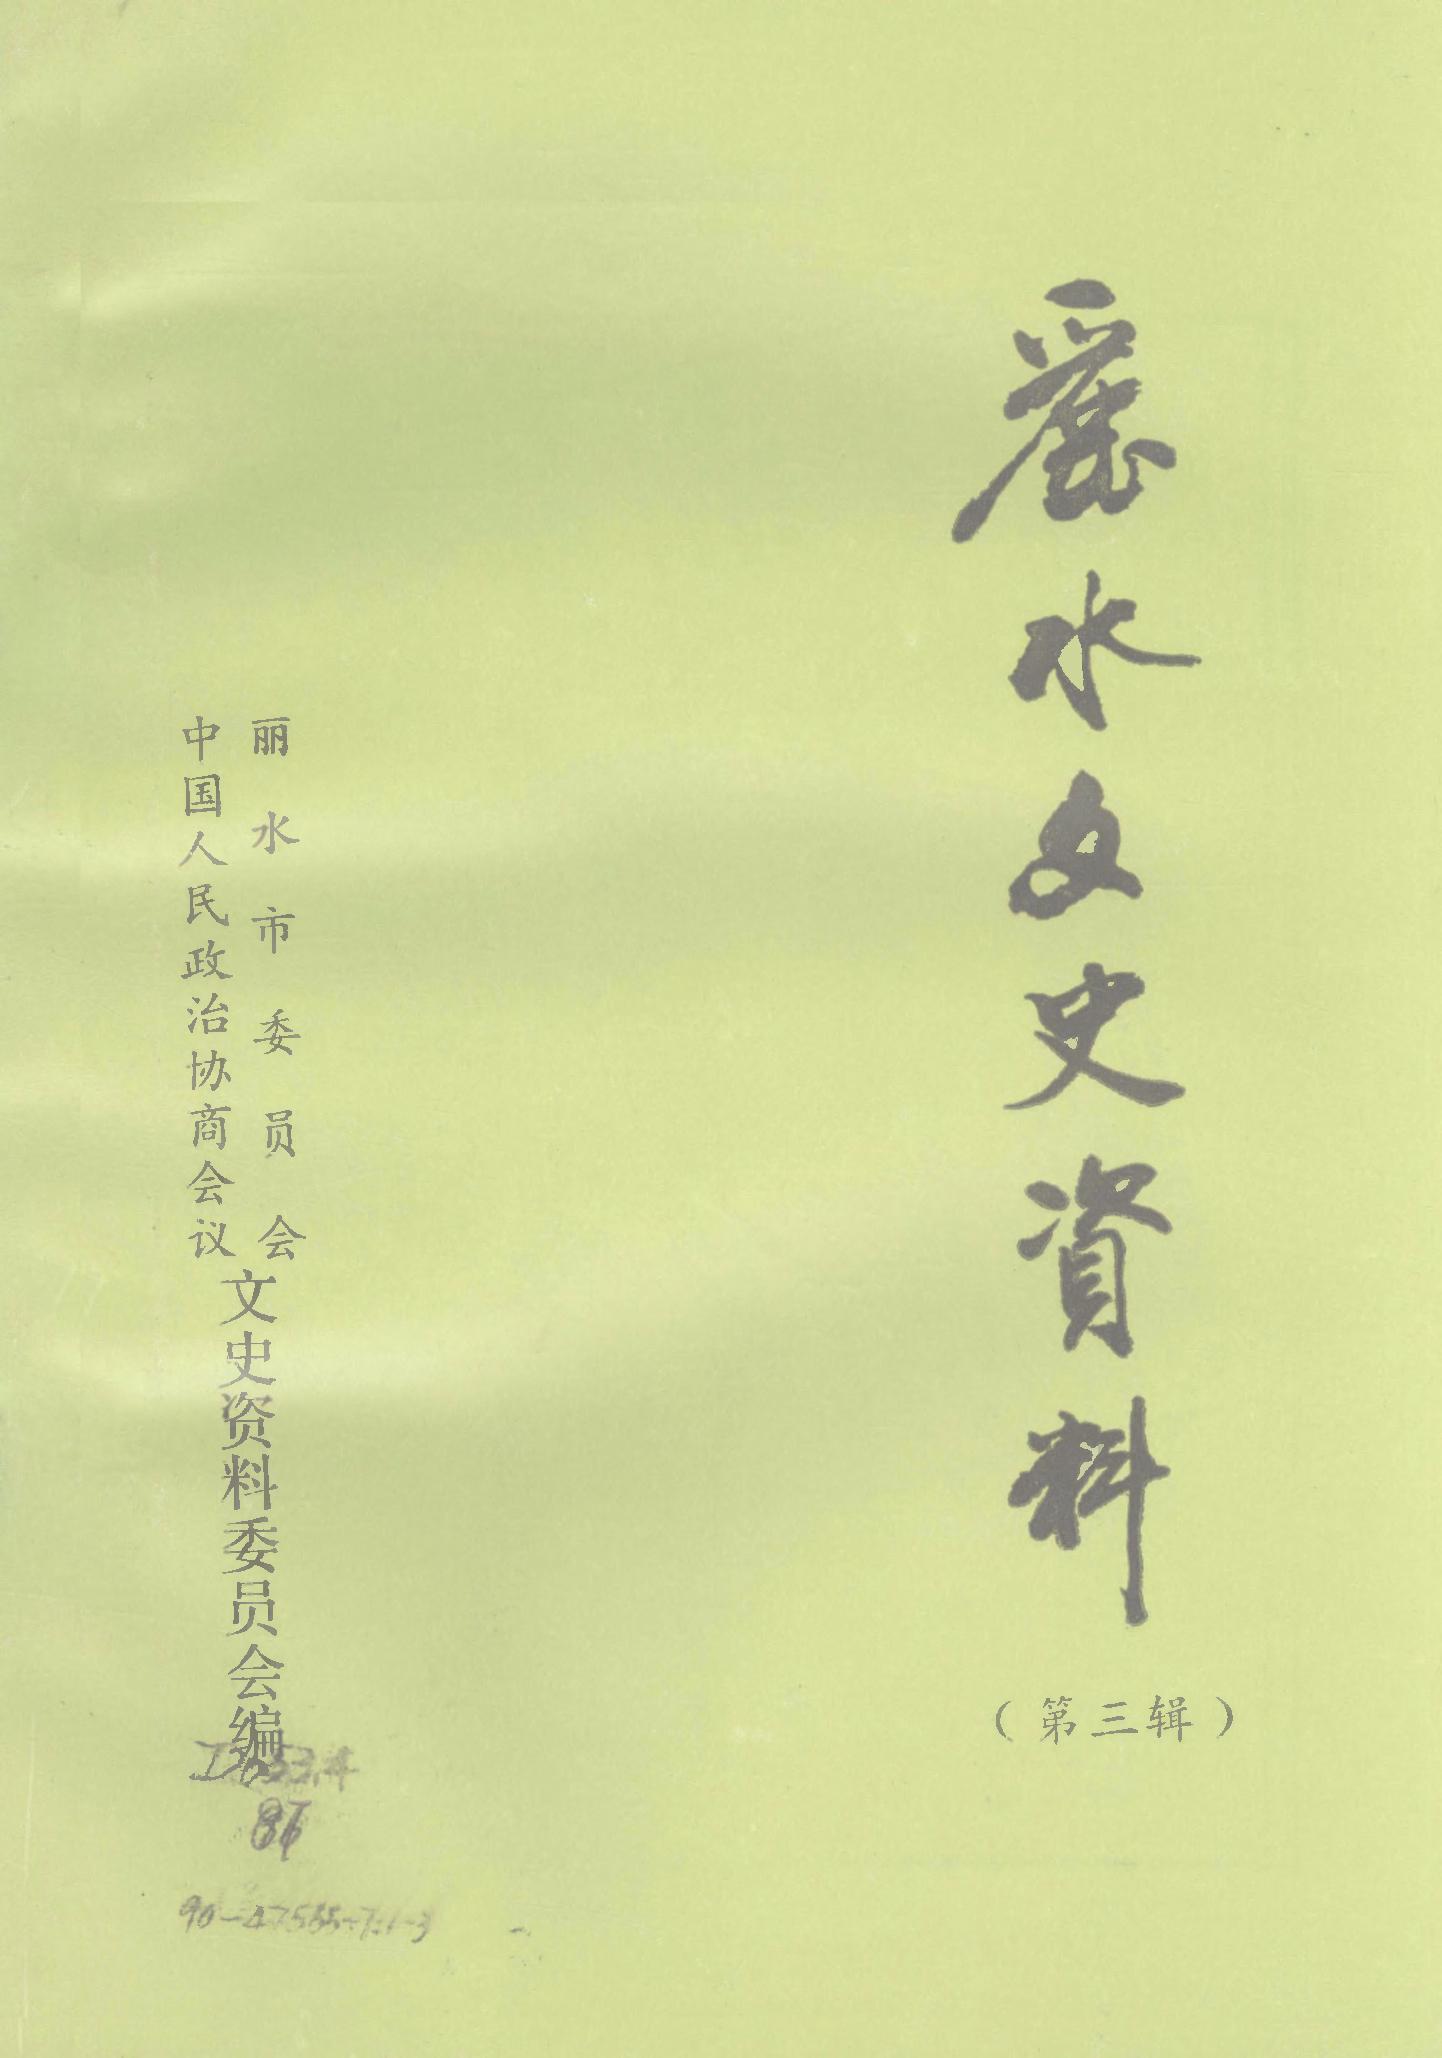 麗水文史資料
（第三辑）
中国人民政治协商会议
丽水市委员会
文史资料委员会编